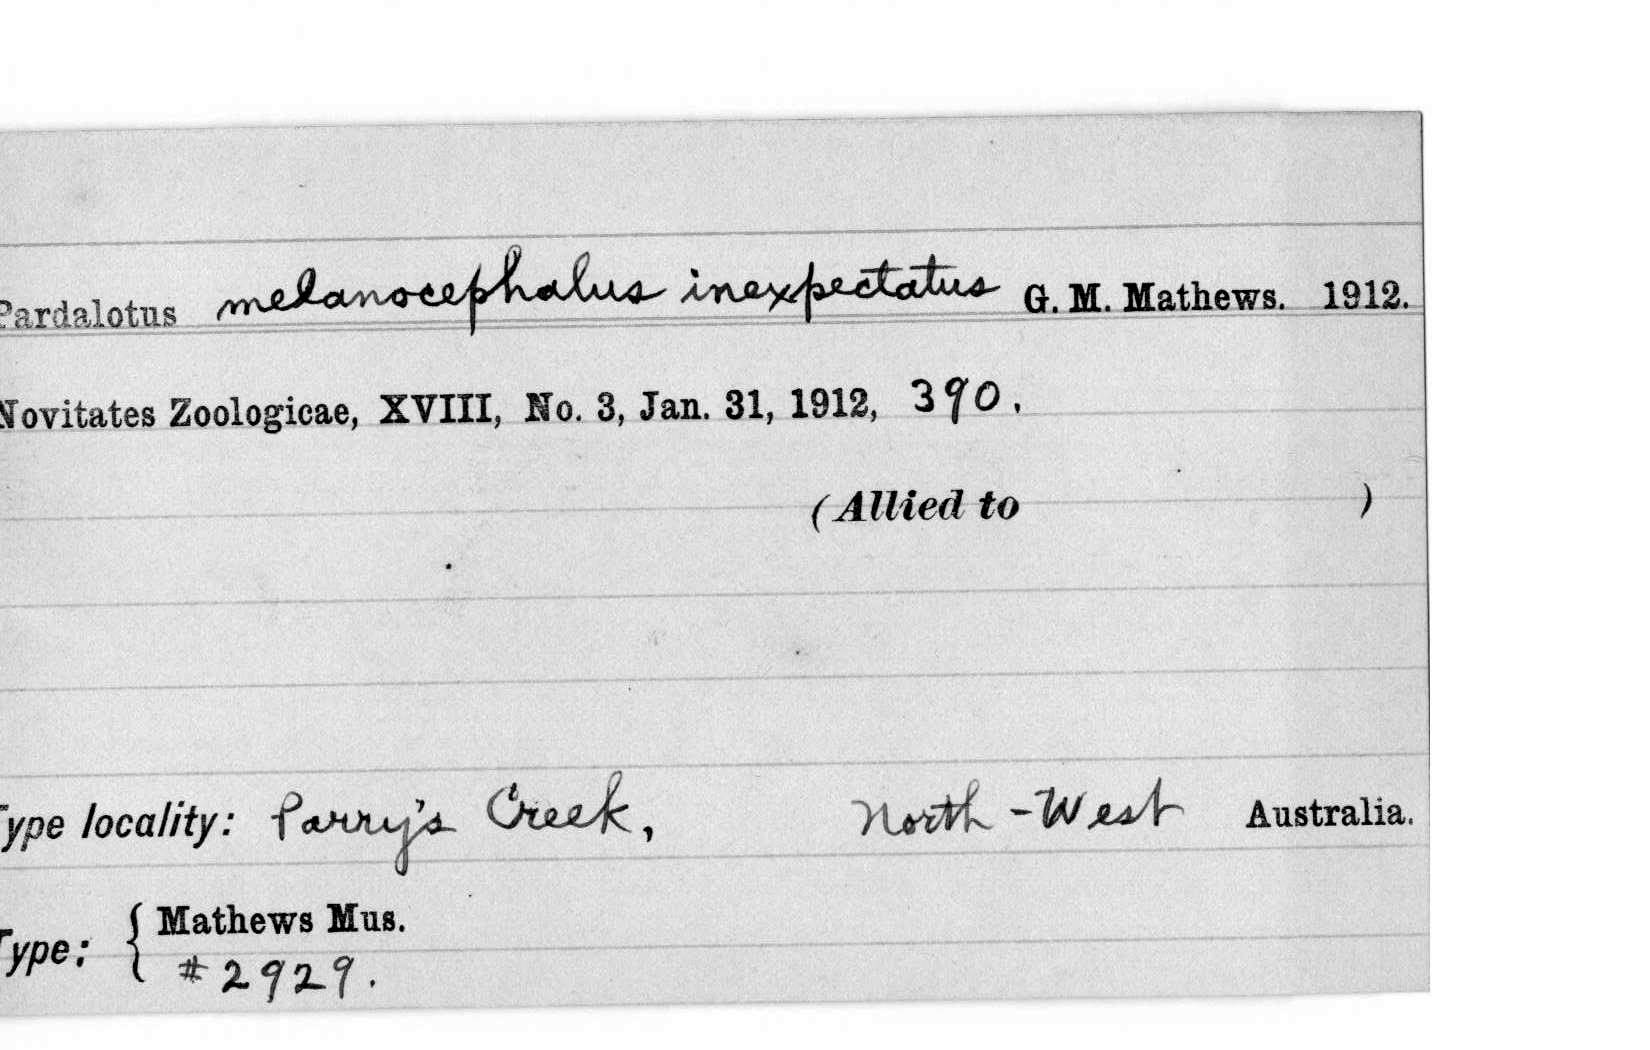 Pardalotus melanocephalus inexpectatus G. M. Mathews. 1912.
Novitates Zoologicae, XVIII, No. 3, Jan. 31, 1912, 390.
(Allied to )
Type locality: Parry's Creek, North-West Australia.
Type: { Mathews Mus.
#2929.